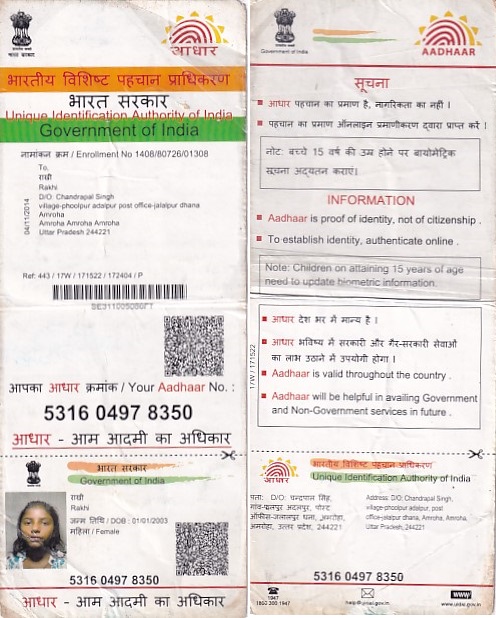 भारत सरकार
आधार
भारतीय विशिष्ट पहचान प्राधिकरण
भारत सरकार
Unique Identification Authority of India
Government of India
नामांकन क्रम / Enrollment No 1408/80726/01308
To,
राखी
Rakhi
D/O: Chandrapal Singh
village-phoolpur adalpur post office-jalalpur dhana
Amroha
Amroha Amroha Amroha
Uttar Pradesh 244221
04/11/2014
Ref: 443 / 17W / 171522 / 172404 / P
आपका आधार क्रमांक / Your Aadhaar No. :
5316 0497 8350
आधार - आम आदमी का अधिकार
भारत सरकार
Government of India
राखी
Rakhi
जन्म तिथि / DOB : 01/01/2003
महिला / Female
5316 0497 8350
आधार - आम आदमी का अधिकार
Government of India
AADHAAR
सूचना
आधार पहचान का प्रमाण है, नागरिकता का नहीं ।
पहचान का प्रमाण ऑनलाइन प्रमाणीकरण द्वारा प्राप्त करें ।
नोट: बच्चे 15 वर्ष की उम्र होने पर बायोमेट्रिक
सूचना अद्यतन कराएं।
INFORMATION
Aadhaar is proof of identity, not of citizenship .
To establish identity, authenticate online .
Note: Children on attaining 15 years of age
need to update biometric information.
आधार देश भर में मान्य है ।
आधार भविष्य में सरकारी और गैर-सरकारी सेवाओं
का लाभ उठाने में उपयोगी होगा ।
Aadhaar is valid throughout the country .
Aadhaar will be helpful in availing Government
and Non-Government services in future .
17W / 171522
आधार
भारतीय विशिष्ट पहचान प्राधिकरण
Unique Identification Authority of India
पता: D/O: चन्द्रपाल सिंह,
अमरोहा, उत्तर प्रदेश, 244221
Address: D/O: Chandrapal Singh,
village-phoolpur adalpur, post
office-jalalpur dhana, Amroha, Amroha,
Uttar Pradesh, 244221
5316 0497 8350
1947
1800 300 1947
help@uidai.gov.in
www
www.uidai.gov.in